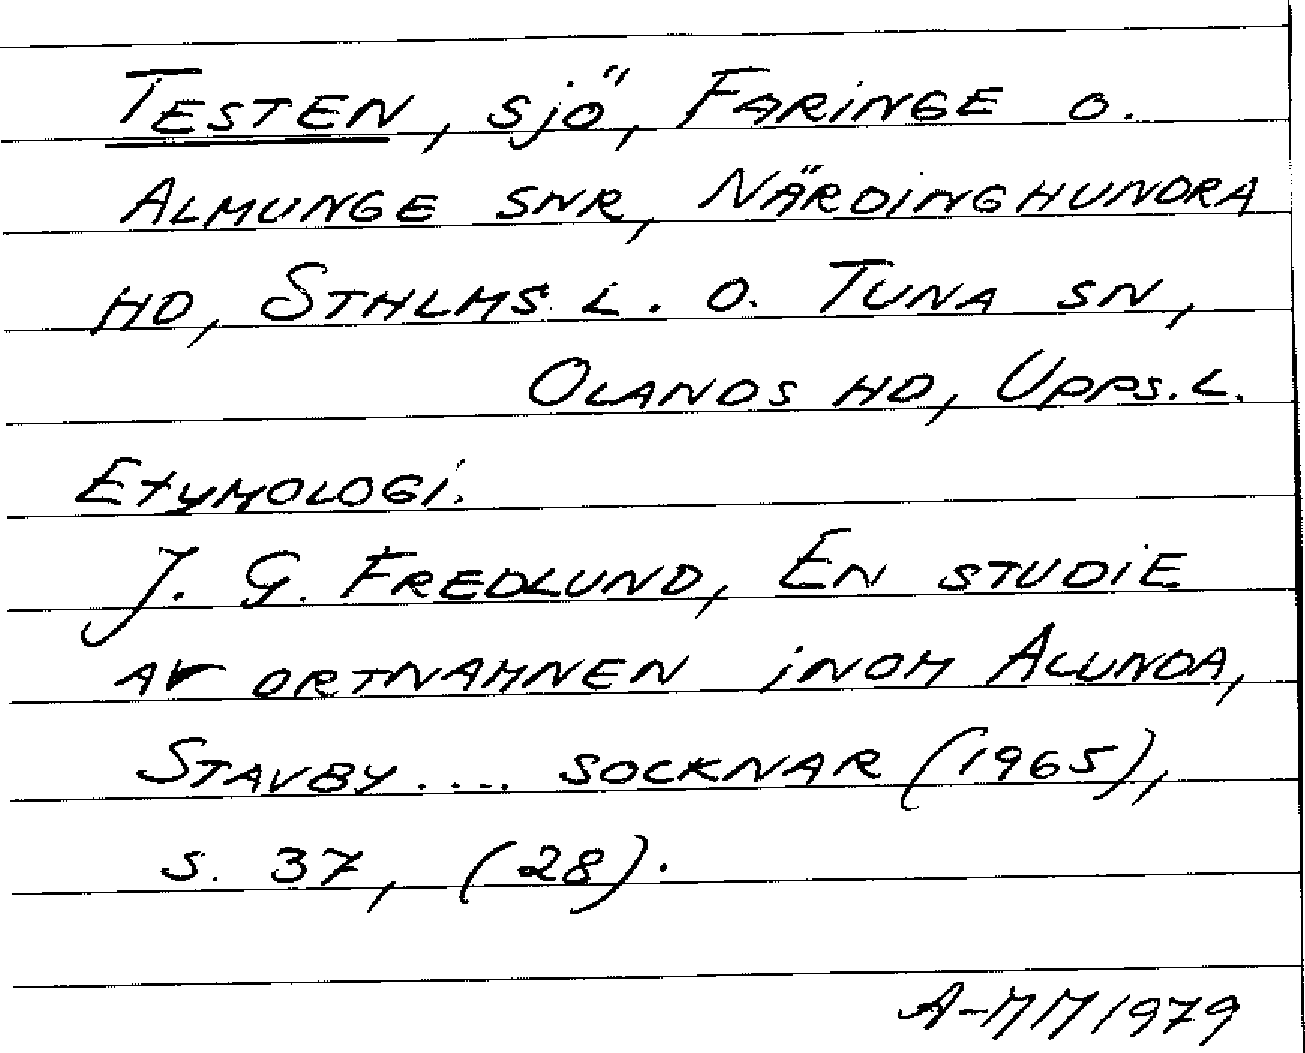 TESTEN, sjö, FARINGE o.
ALMUNGE SNR, NÄRDINGHUNDRA
HD, STHLMS. L. O. TUNA SN,
OLANDS HD, UPPS. L.
ETYMOLOGI.
J. G. FREDLUND, EN STUDIE
AV ORTNAMNEN INOM ALUNDA,
STAVBY.... SOCKNAR (1965),
S. 37, (28).
A-MM 1979